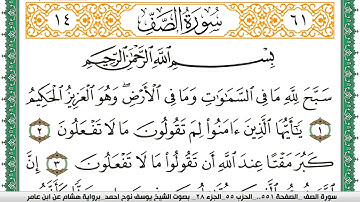 ٦١ سُورَةُ الصَّفِّ ١٤
بِسْمِ اللَّهِ الرَّحْمَٰنِ الرَّحِيمِ
سَبَّحَ لِلَّهِ مَا فِي السَّمَاوَاتِ وَمَا فِي الْأَرْضِ وَهُوَ الْعَزِيزُ الْحَكِيمُ
١ يَٰٓأَيُّهَا الَّذِينَ ءَامَنُوا لِمَ تَقُولُونَ مَا لَا تَفْعَلُونَ ٢
كَبُرَ مَقْتًا عِندَ اللَّهِ أَن تَقُولُوا مَا لَا تَفْعَلُونَ ٣ إِنَّ
سورة الصف_ الصفحة ٥٥١... الحزب ٥٥_ الجزء ٢٨_ بصوت الشيخ يوسف نوح احمد_ برواية هشام عن ابن عامر